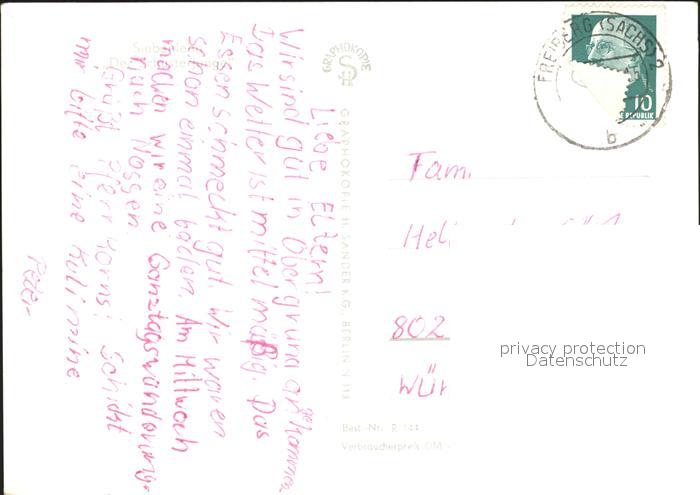 Liebe Eltern!
Wir sind gut in Obergruna angekommen
Das Wetter ist mittelmäßig. Das
Essen schmeckt gut. Wir waren
schon einmal baden. Am Mittwoch
machen wir eine Ganztagswanderung
nach Nossen.
Grüßt
Schickt
mir bitte eine Kulimine
Peter
GRAPHOKOPIE
GRAPHOKOPIE H. SANDER KG., BERLIN N 113
FREIBERG (SACHS) 2
b
10
REPUBLIK
Fam.
Hel
802
WÜ
privacy protection
Datenschutz
Best.-Nr. R 144
Verbraucherpreis DM